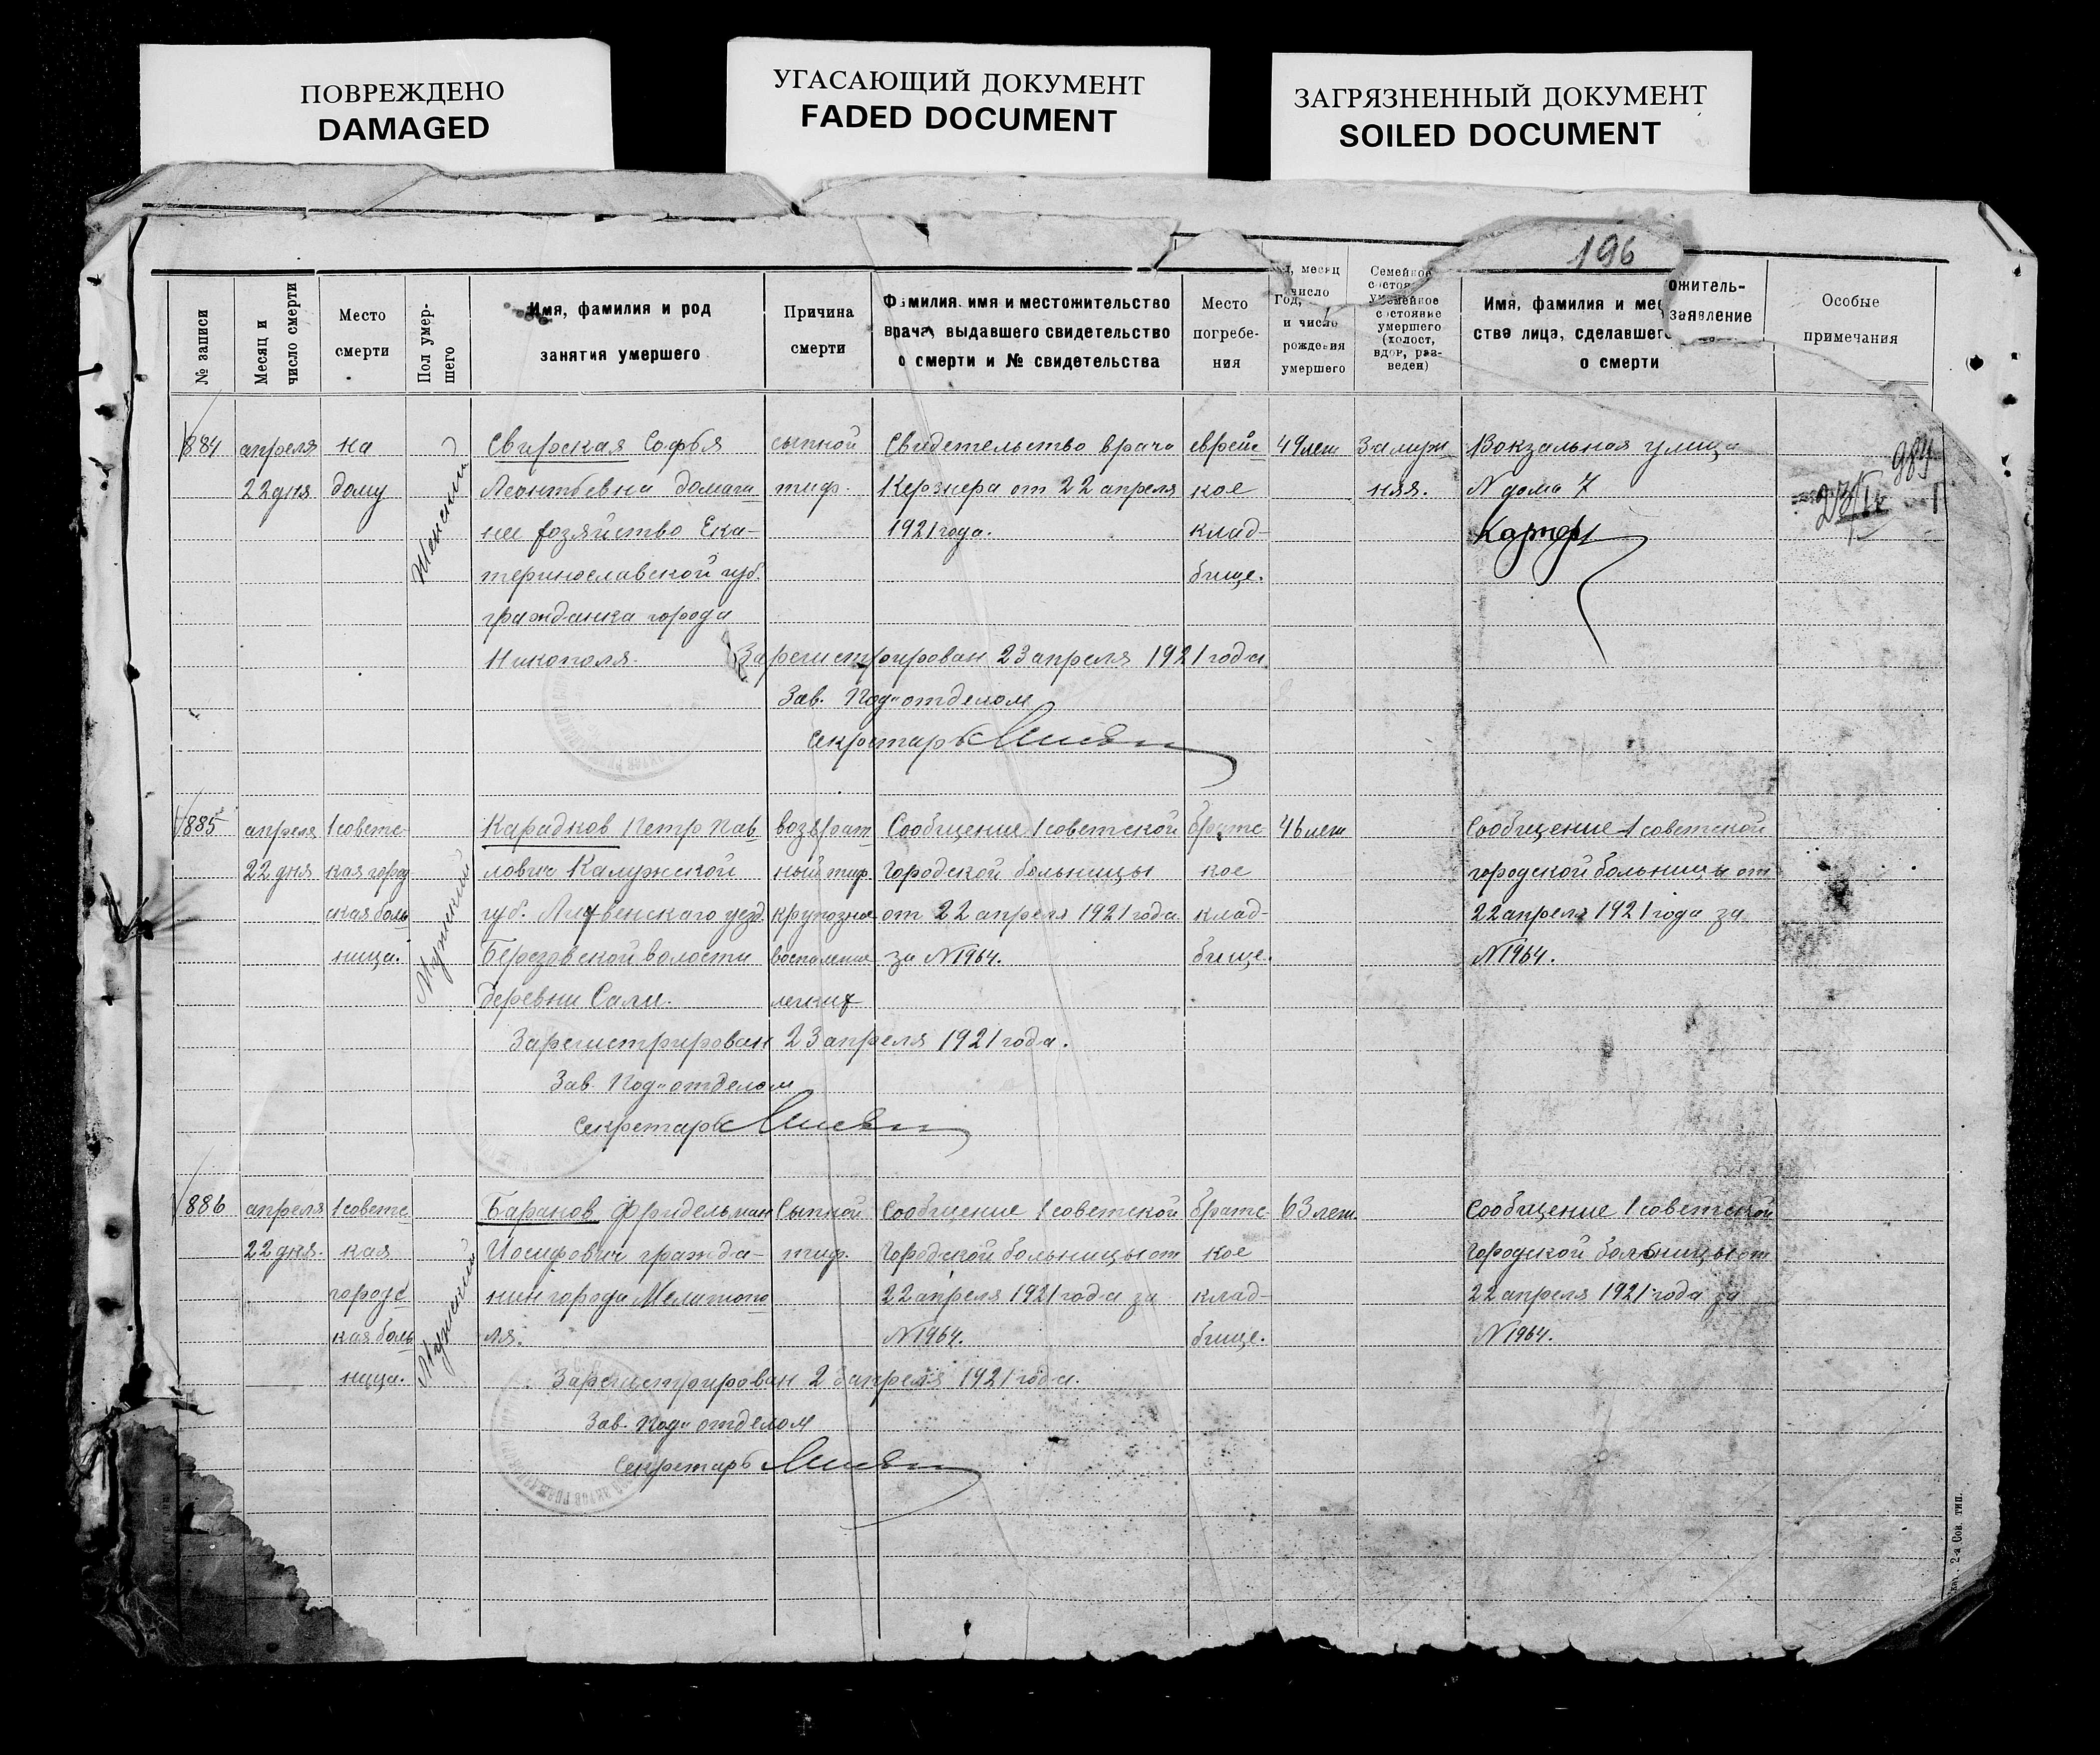 ПОВРЕЖДЕНО
DAMAGED
УГАСАЮЩИЙ ДОКУМЕНТ
FADED DOCUMENT
ЗАГРЯЗНЕННЫЙ ДОКУМЕНТ
SOILED DOCUMENT
196
№ записи
Месяц и
число смерти
Место
смерти
Пол умер-
шего
Имя, фамилия и род
занятия умершего
Причина
смерти
Фамилия, имя и местожительство
врача, выдавшего свидетельство
о смерти и № свидетельства
Место
погребе-
ния
месяц
число
Год,
и число
рождения
умершего
Семейное
состоя
Семейное
состояние
умершего
(холост,
вдов, раз-
веден)
Имя, фамилия и мес
ожитель-
ства лица, сделавшего
заявление
о смерти
Особые
примечания
884
апреля
22 дня
на
дому
Женский
Свирская Софья
Леонтьевна домаш
нее хозяйство Ека-
теринославской губ.
гражданка города
Никополя.
сыпной
тиф.
Свидетельство врача
Керзнера от 22 апреля
1921 года.
еврейс
кое
клад-
бище.
49 лет
Замуж
няя.
Вокзальная улица
N дома 7
984
Зарегистрирован 23 апреля 1921 года
Зав. Под"отделом
Секретарь
885
апреля
22 дня
1 советс
кая город
ская боль
ница.
Мужской
Карадков Петр Пав
лович Калужской
губ. Лихвенскаго уезд.
Березовской волости
деревни Сали.
возврат
ный тиф.
крупозное
воспаление
легких
Сообщение 1 советской
Городской больницы
от 22 апреля 1921 года
за N 1964.
братс
кое
клад-
бище.
46 лет
Сообщение 1 советской
городской больницы от
22 апреля 1921 года за
N 1964.
Зарегистрирован 23 апреля 1921 года.
Зав. Под"отделом
Секретарь
886
апреля
22 дня.
1 советс
кая
городс
кая боль
ница.
Мужской
Баранов Фридельман
Иосифович гражда-
нин города Мелитопо
ля.
Сыпной
тиф.
Сообщение 1 советской
Городской больницы от
22 апреля 1921 года за
N 1964.
братс
кое
клад-
бище.
63 лет.
Сообщение 1 советской
городской больницы от
22 апреля 1921 года за
N 1964.
Зарегистрирован 23 апреля 1921 года.
Зав. Под"отделом
Секретарь
2-я Сов. тип.